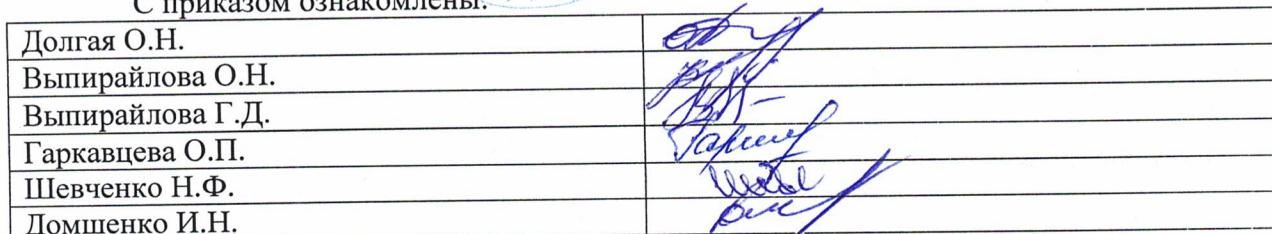 С приказом ознакомлены:
Долгая О.Н.
Выпирайлова О.Н.
Выпирайлова Г.Д.
Гаркавцева О.П.
Шевченко Н.Ф.
Домшенко И.Н.